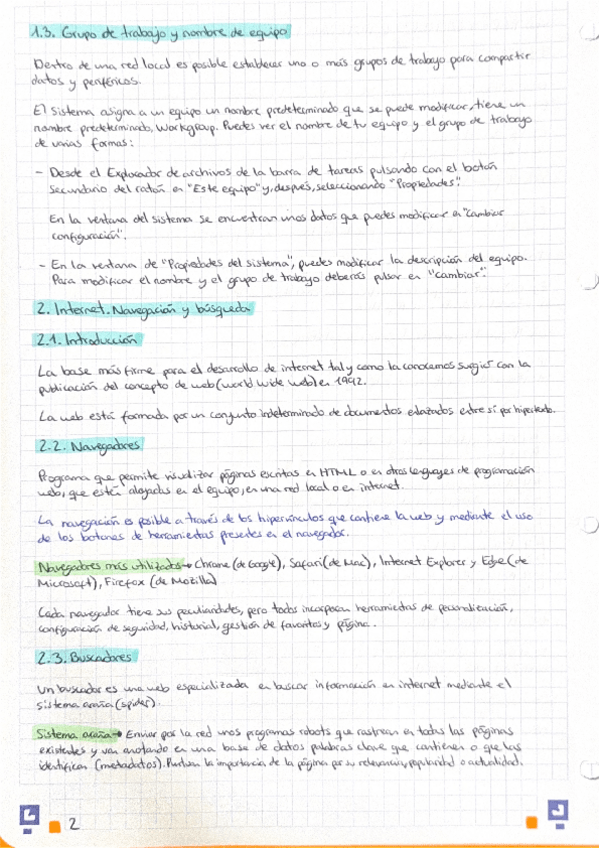 1.3. Grupo de trabajo y nombre de equipo
Dentro de una red local es posible establecer uno o más grupos de trabajo para compartir
datos y periféricos.
El sistema asigna a un equipo un nombre predeterminado que se puede modificar, tiene un
nombre predeterminado, Workgroup. Puedes ver el nombre de tu equipo y el grupo de trabajo
de varias formas:
- Desde el Explorador de archivos de la barra de tareas pulsando con el botón
secundario del ratón en "Este equipo" y, después, seleccionando "Propiedades".
En la ventana del sistema se encuentran unos datos que puedes modificar en "Cambiar
configuración".
- En la ventana de "Propiedades del sistema", puedes modificar la descripción del equipo.
Para modificar el nombre y el grupo de trabajo deberás pulsar en "cambiar".
2. Internet. Navegación y búsqueda
2.1. Introducción
La base más firme para el desarrollo de internet tal y como la conocemos surgió con la
publicación del concepto de web (world wide web) en 1992.
La web está formada por un conjunto indeterminado de documentos enlazados entre sí por hipertexto.
2.2. Navegadores
Programa que permite visualizar páginas escritas en HTML o en otros lenguajes de programación
web, que estén alojadas en el equipo, en una red local o en internet.
La navegación es posible a través de los hipervínculos que contiene la web y mediante el uso
de los botones de herramientas presentes en el navegador.
Navegadores más utilizados → Chrome (de Google), Safari (de Mac), Internet Explorer y Edge (de
Microsoft), Firefox (de Mozilla)
Cada navegador tiene sus peculiaridades, pero todos incorporan herramientas de personalización,
configuración de seguridad, historial, gestión de favoritos y página.
2.3. Buscadores
Un buscador es una web especializada en buscar información en internet mediante el
sistema araña (spider).
Sistema araña → Enviar por la red unos programas robots que rastrean en todas las páginas
existentes y van anotando en una base de datos palabras clave que contienen o que las
identifican (metadatos). Puntúan la importancia de la página por su relevancia, popularidad o actualidad.
2